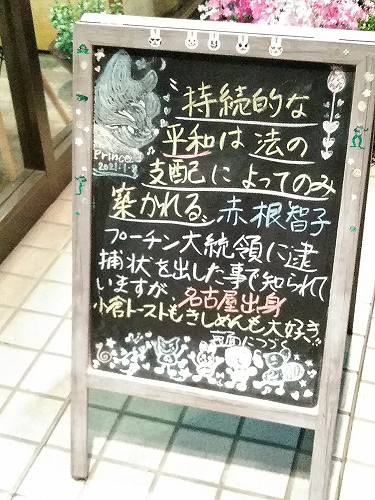 Prince
2021.1.8
〝持続的な
平和は法の
支配によってのみ
築かれる〟赤根智子
プーチン大統領に逮
捕状を出した事で知られて
いますが名古屋出身
小倉トーストもきしめんも大好き!!
裏面につづく